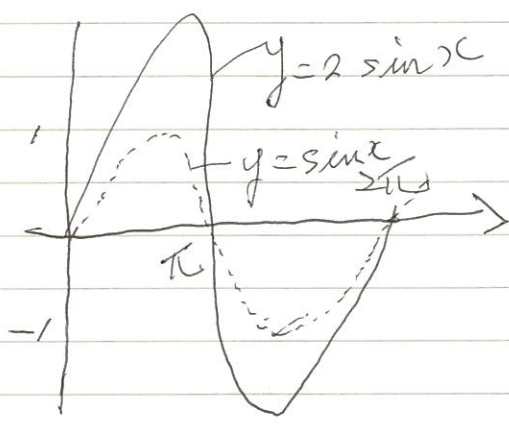 y=2 sinx
1
y=sinx
2π
π
-1